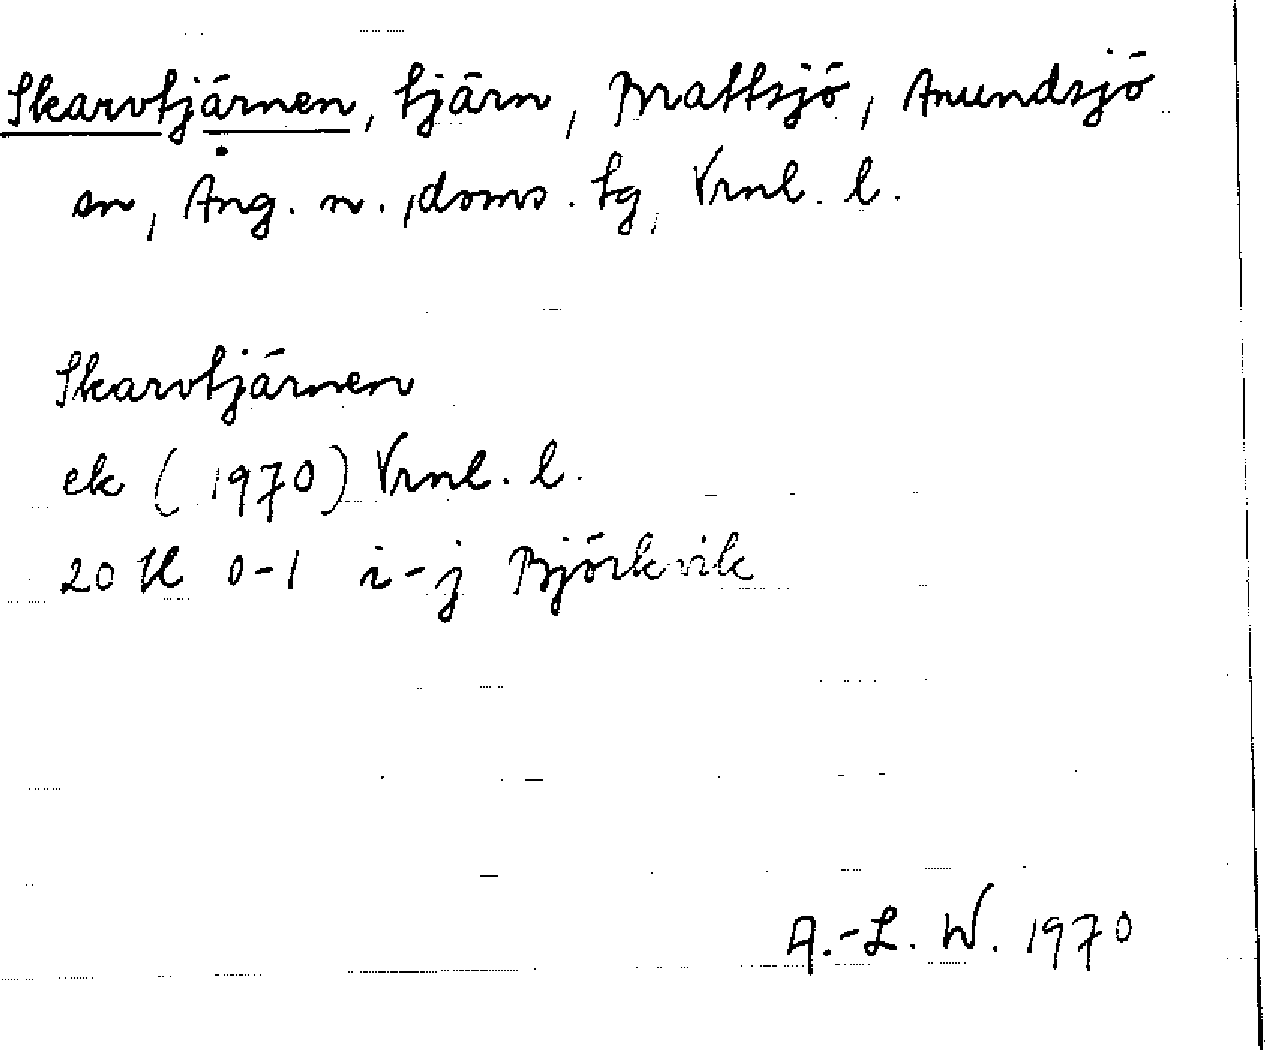 Skarvtjärnen, tjärn, Mattsjö, Anundsjö
sn, Ång. n., doms. tg, Vrnl. l.
Skarvtjärnen
ek (1970) Vrnl. l.
20 H 0-1 i-j Björkvik
A.-L. W. 1970